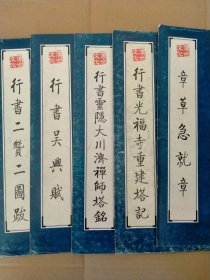 章草急就章
行書光福寺重建塔記
行書靈隱大川濟禪師塔銘
行書吳興賦
行書二贊二圖跋